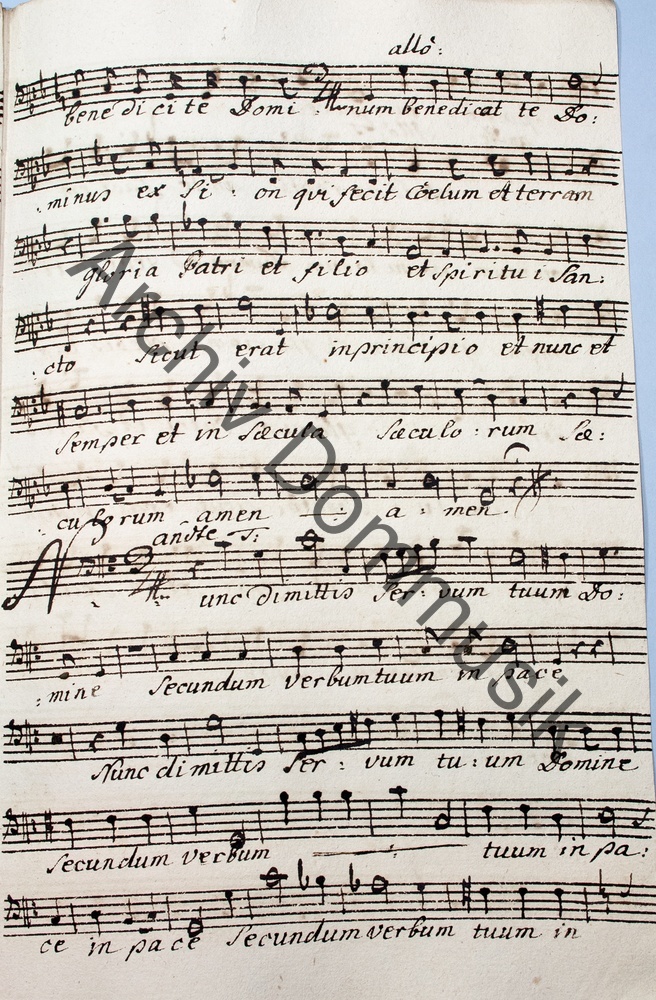 allo:
bene dicite Domi : num benedicat te Do:
: minus ex Si : on qui fecit Coelum et terram
gloria Patri et filio et Spiritui San:
: cto sicut erat in principio et nunc et
semper et in Sæcula sæculo : rum sæ:
: culorum amen : a : men.
andte T:
Nunc dimittis Ser : vum tuum Do:
: mine Secundum verbum tuum in pace
Nunc dimittis Ser : vum tu : um Domine
Secundum verbum : tuum in pa:
ce in pace Secundum verbum tuum in
Archiv Dommusik